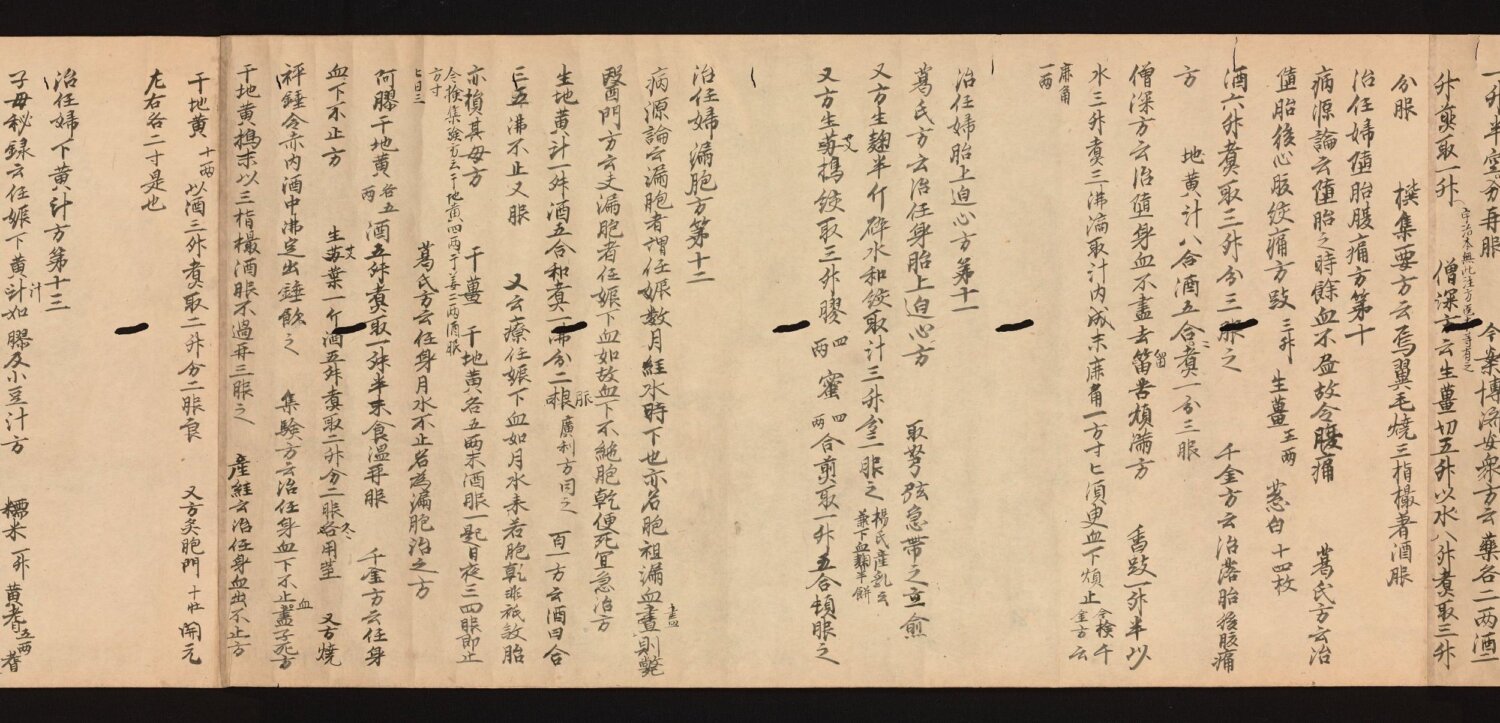 一升半空分再服 今案博濟安衆方云藥各二两酒二
升煎取一升 宇治本無此注方 僧深方云生薑切五升以水八升煮取三升
分服 僕集要方云焉翼毛燒三指撮著酒服
治任婦墮胎腹痛方第十
病源論云墮胎之時餘血不盡故令腹痛 葛氏方云治
墮胎後心腹绞痛方豉三升 生薑五两 葱白十四枚
酒六升煮取三升分三服之 千金方云治落胎後腹痛
方 地黄汁八合酒五合煮一分三服
僧深方云治墮身血不盡去留苦煩满方 香豉一升半以
水三升煮三沸滴取汁内成末鹿角一方寸匕須臾血下煩止 今検千金方云
鹿角一两
治任婦胎上迫心方第十一
葛氏方云治任身胎上迫心方 取弩弦急帶之立愈
又方生麹半斤碎水和绞取汁三升分二服之 楊氏産乳云兼下血麹半餅
又方生艾搗绞取三升膠四两蜜四两合煎取一升五合頓服之
治任婦漏胞方第十二
病源論云漏胞者謂任娠数月經水時下也亦名胞祖漏血盡則斃
醫門方云夫漏胞者任娠下血如故血下不絶胞乾便死宜急治方
生地黄汁一升酒五合和煮一沸分二服 廣利方同之 百一方云酒四合
三五沸不止又服 又云療任娠下血如月水来若胞乾非祇敛胎
亦損其母方 干薑 干地黄各五两末酒服一匙日夜三四服即止
今検集験方云干地黄四两干姜二两酒服方寸匕日三
葛氏方云任身月水不止名為漏胞治之方
阿膠干地黄各五两酒五升煮取一升半未食温再服 千金方云任身
血下不止方 生艾葉一斤酒五升煮取二升分二服冬用莖 又方燒
秤錘令赤内酒中沸定出錘飲之 集験方云治任身血下不止血盡子死方
干地黄搗末以三指撮酒服不過再三服之 産經云治任身血出不止方
干地黄十两以酒三升煮取二升分二服良 又方灸胞門十壮関元
左右各二寸是也
治任婦下黄汁方第十三
子母秘録云任娠下黄汁如膠及小豆汁方 糯米一升 黄耆五两